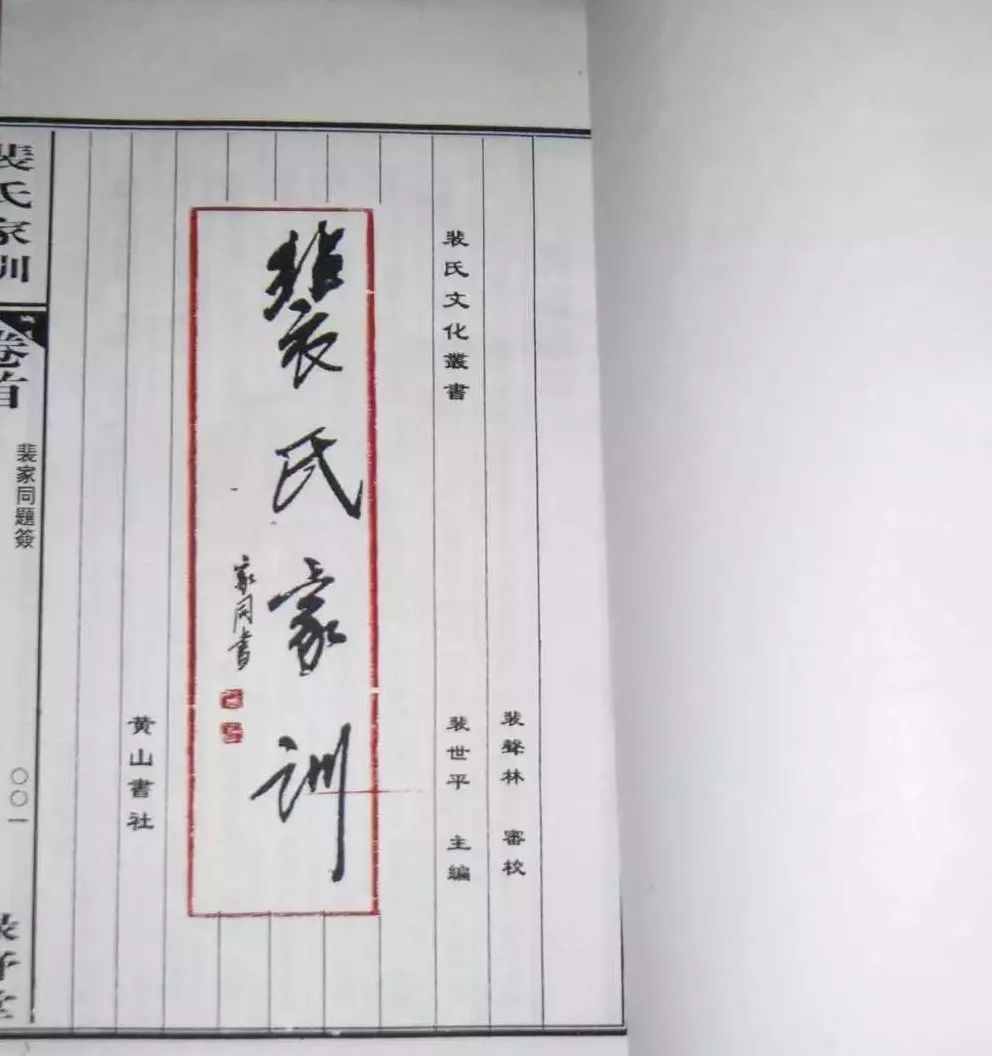 裴氏文化叢書
裴聲林 審校
裴世平 主編
裴氏家訓
家同書
黄山書社
裴氏家訓
卷首
裴家同題簽
〇〇一